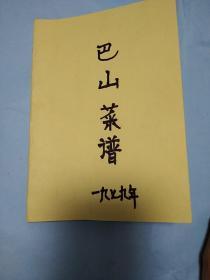 巴山菜谱
一九七九年